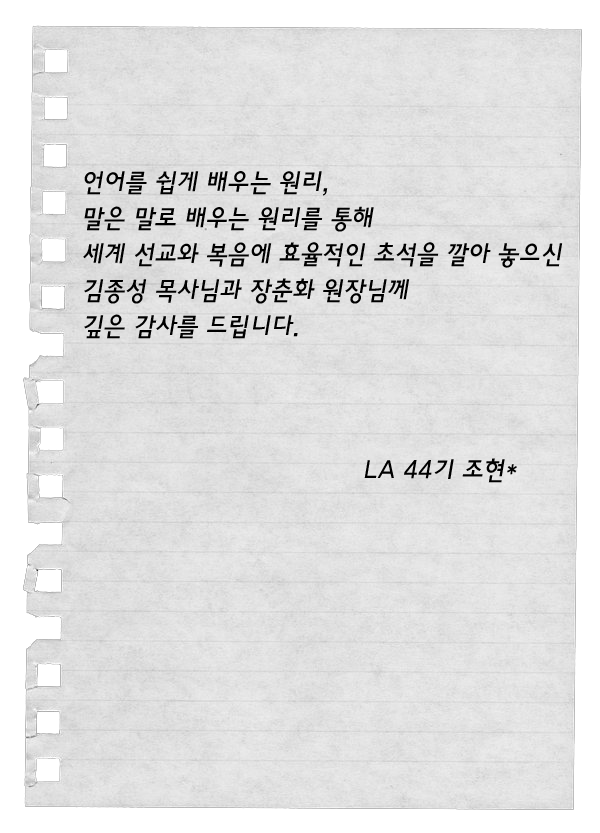 언어를 쉽게 배우는 원리,
말은 말로 배우는 원리를 통해
세계 선교와 복음에 효율적인 초석을 깔아 놓으신
김종성 목사님과 장춘화 원장님께
깊은 감사를 드립니다.
LA 44기 조현*